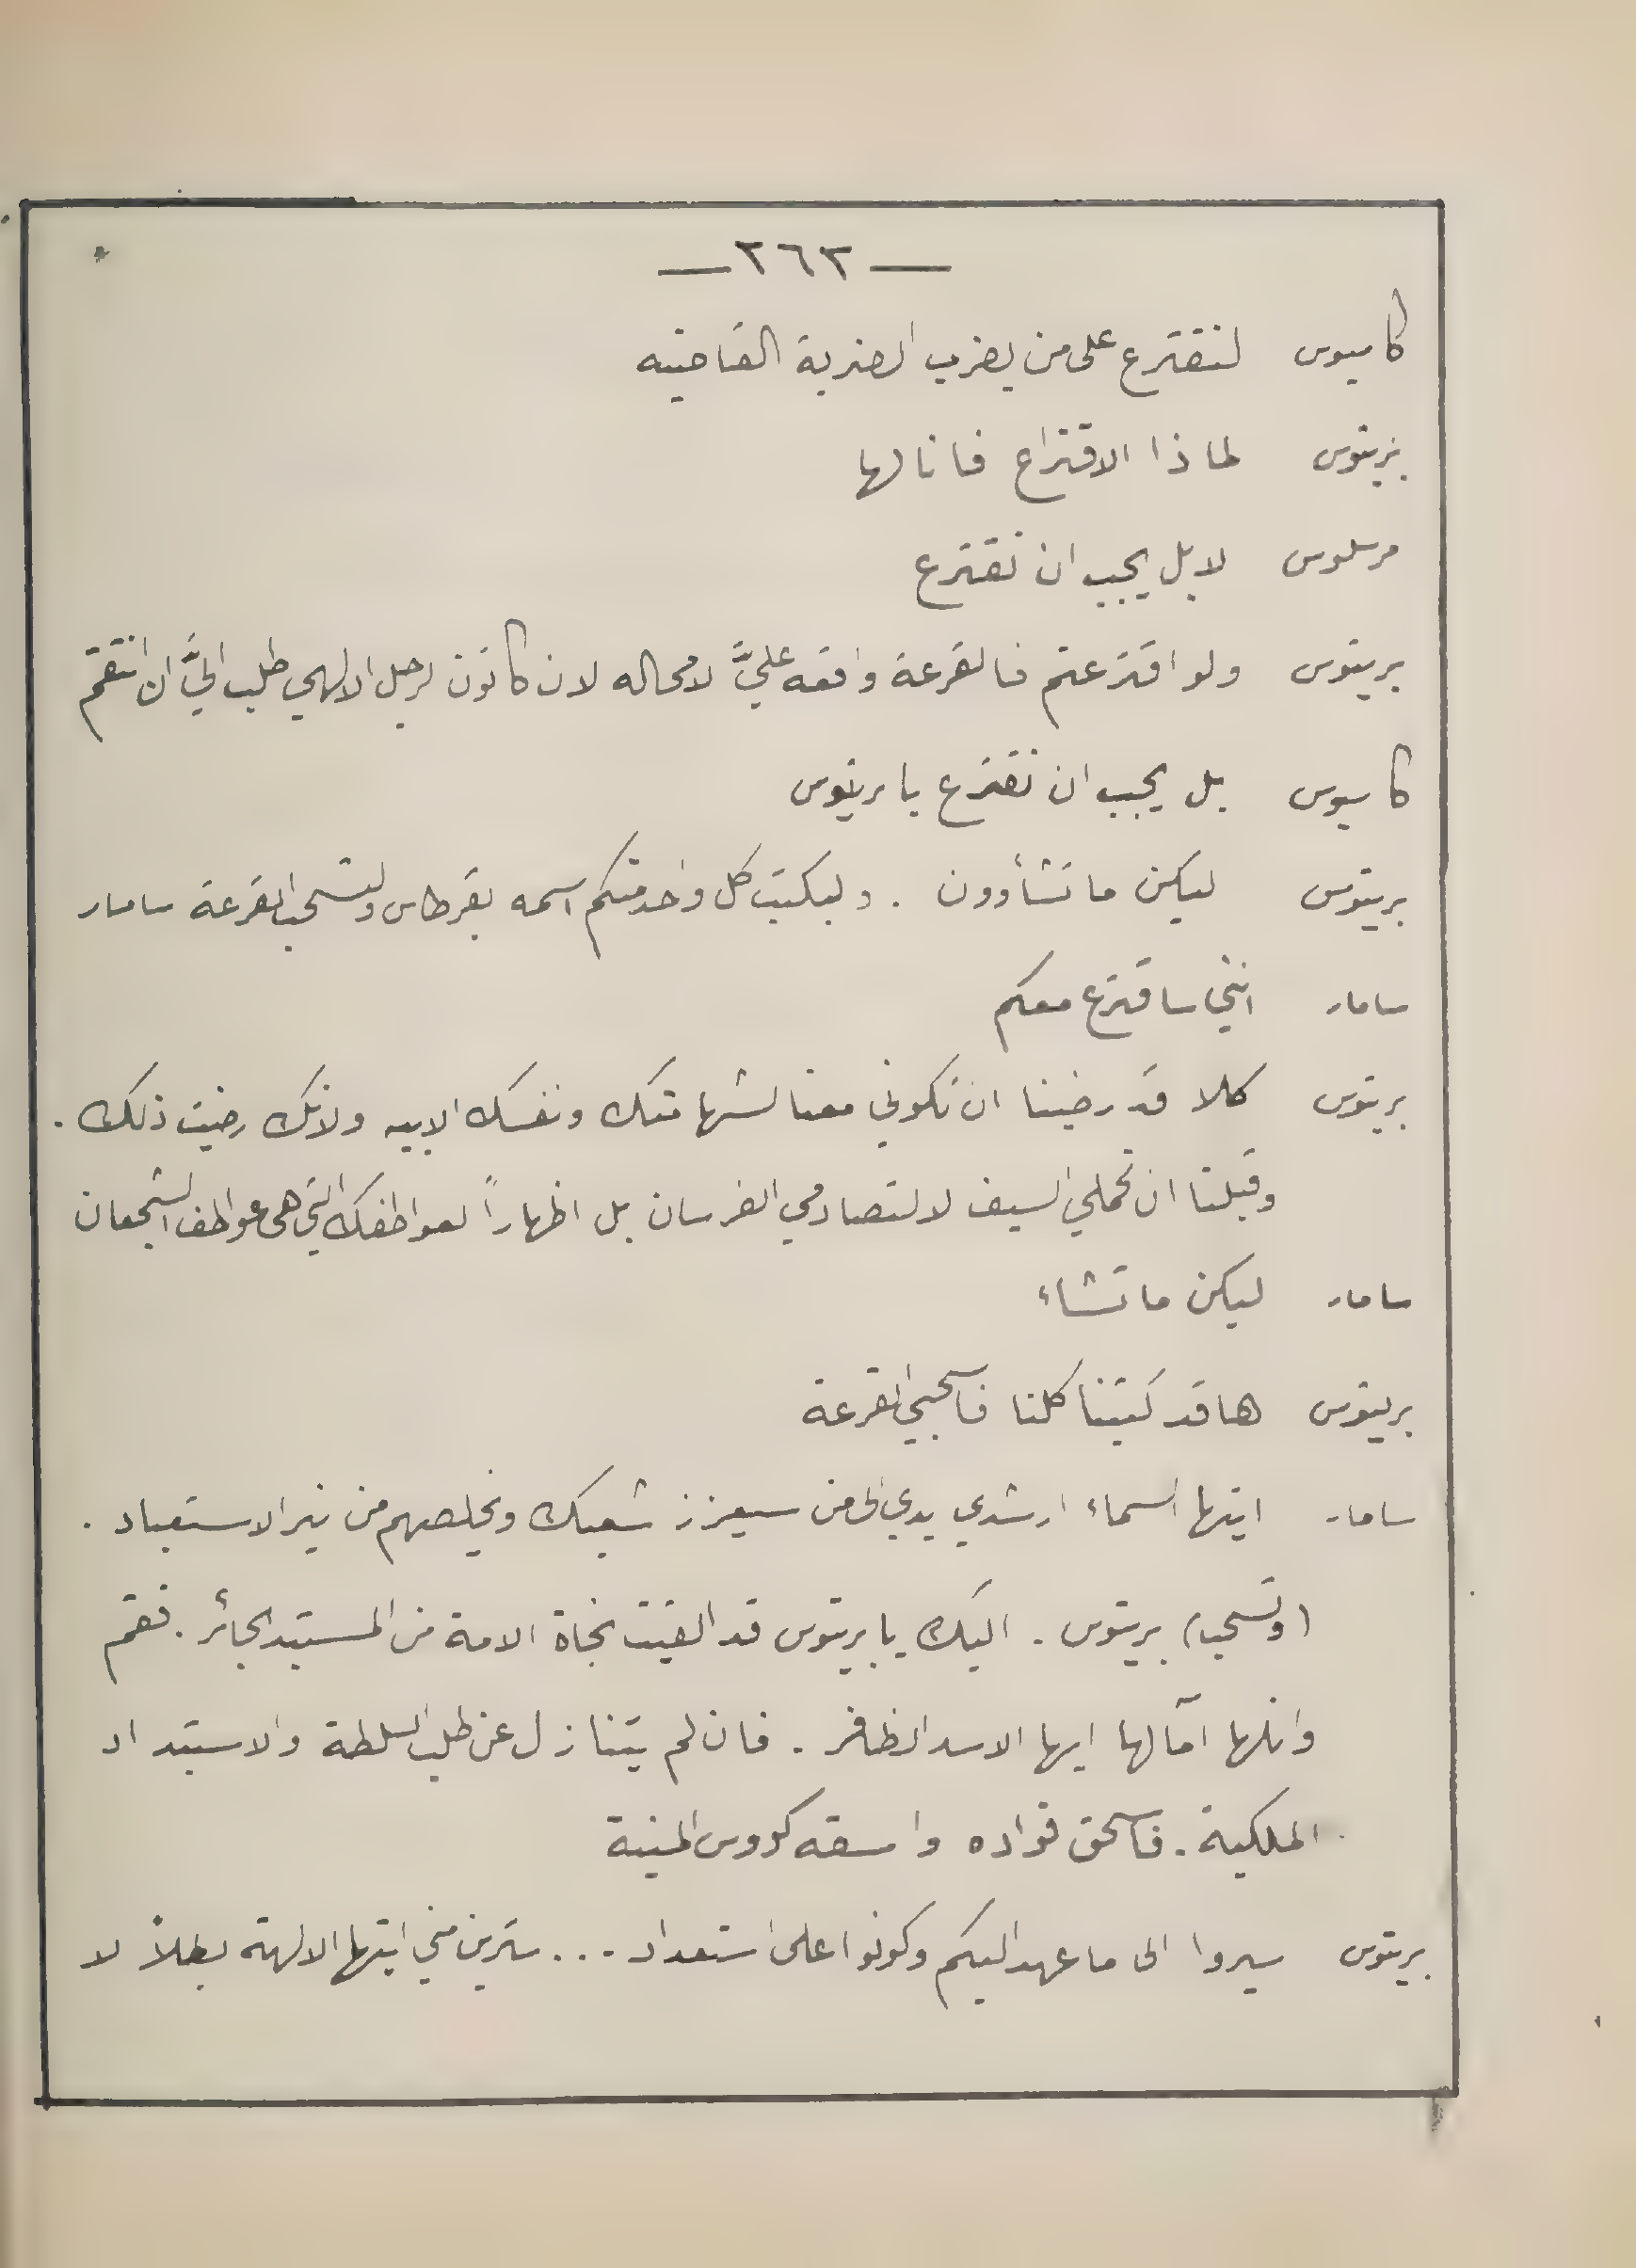 — ٢٦٣ —
كاسيوس لنقترع على من يضرب الضربة القاضيه
بريتوس لماذا الاقتراع فانا لها
مرسلوس لا بل يجب ان نقترع
بريتوس ولو اقترعتم فالقرعة واقعه عليَّ لا محاله لان كاتون الرجل الالهي طلب اليَّ ان انتقم
كاسيوس بل يجب ان نقترع يا بريتوس
بريتوس ليكن ما تشأوون . وليكتب كل واحد منكم اسمه بقرطاس ولتسحب القرعة سامار
سامار انني ساقترع معكم
بريتوس كلا قد رضينا ان تكوني معنا لشهامتك ونفسك الابيه ولانك رضيت ذلك .
وقبلنا ان تحملي السيف لا لتصادمي الفرسان بل اظهاراً لعواطفك التي هي عواطف الشجعان
سامار ليكن ما تشاء
بريتوس ها قد كتبنا كلنا فاسحبي القرعة
سامار ايتها السماء ارشدي يدي الى من سيعزز شعبك ويخلصهم من نير الاستعباد .
(وتسحب) بريتوس . اليك يا بريتوس قد القيت نجاة الامة من المستبد الجائر . فقم
وانلها آمالها ايها الاسد الظافر . فان لم يتنازل عن طلب السلطة والاستبداد
الملكية . فاسحق فواده واسقه كووس المنية
بريتوس سيروا الى ما عهد اليكم وكونوا على استعداد ... سترين مني ايتها الالهة بطلاً لا